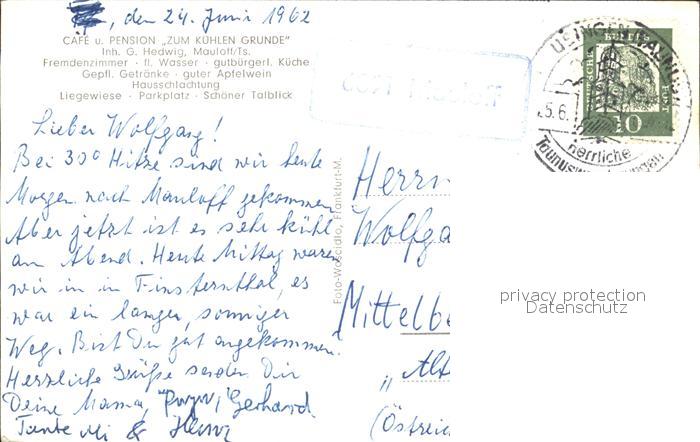 , den 24. Juni 1962
CAFÉ u. PENSION „ZUM KÜHLEN GRUNDE"
Inh. G. Hedwig, Mauloff/Ts.
Fremdenzimmer · fl. Wasser · gutbürgerl. Küche
Gepfl. Getränke · guter Apfelwein
Hausschlachtung
Liegewiese · Parkplatz · Schöner Talblick
Mauloff
USINGEN
5.6.
herrliche
DEUTSCHE BUNDESPOST
10
Lieber Wolfgang!
Bei 30° Hitze sind wir heute
Morgen nach Mauloff gekommen
Aber jetzt ist es sehr kühl
am Abend. Heute Mittag waren
wir in in Finsternthal, es
war ein langer, sonniger
Weg. Bist Du gut angekommen?
Herzliche Grüße senden Dir
Deine Mama, Gerhard
Tante &
Foto-Wascidlo, Frankfurt-M.
Herrn
Wolfga
Mittelbe
„Alt
(Östreic
privacy protection
Datenschutz